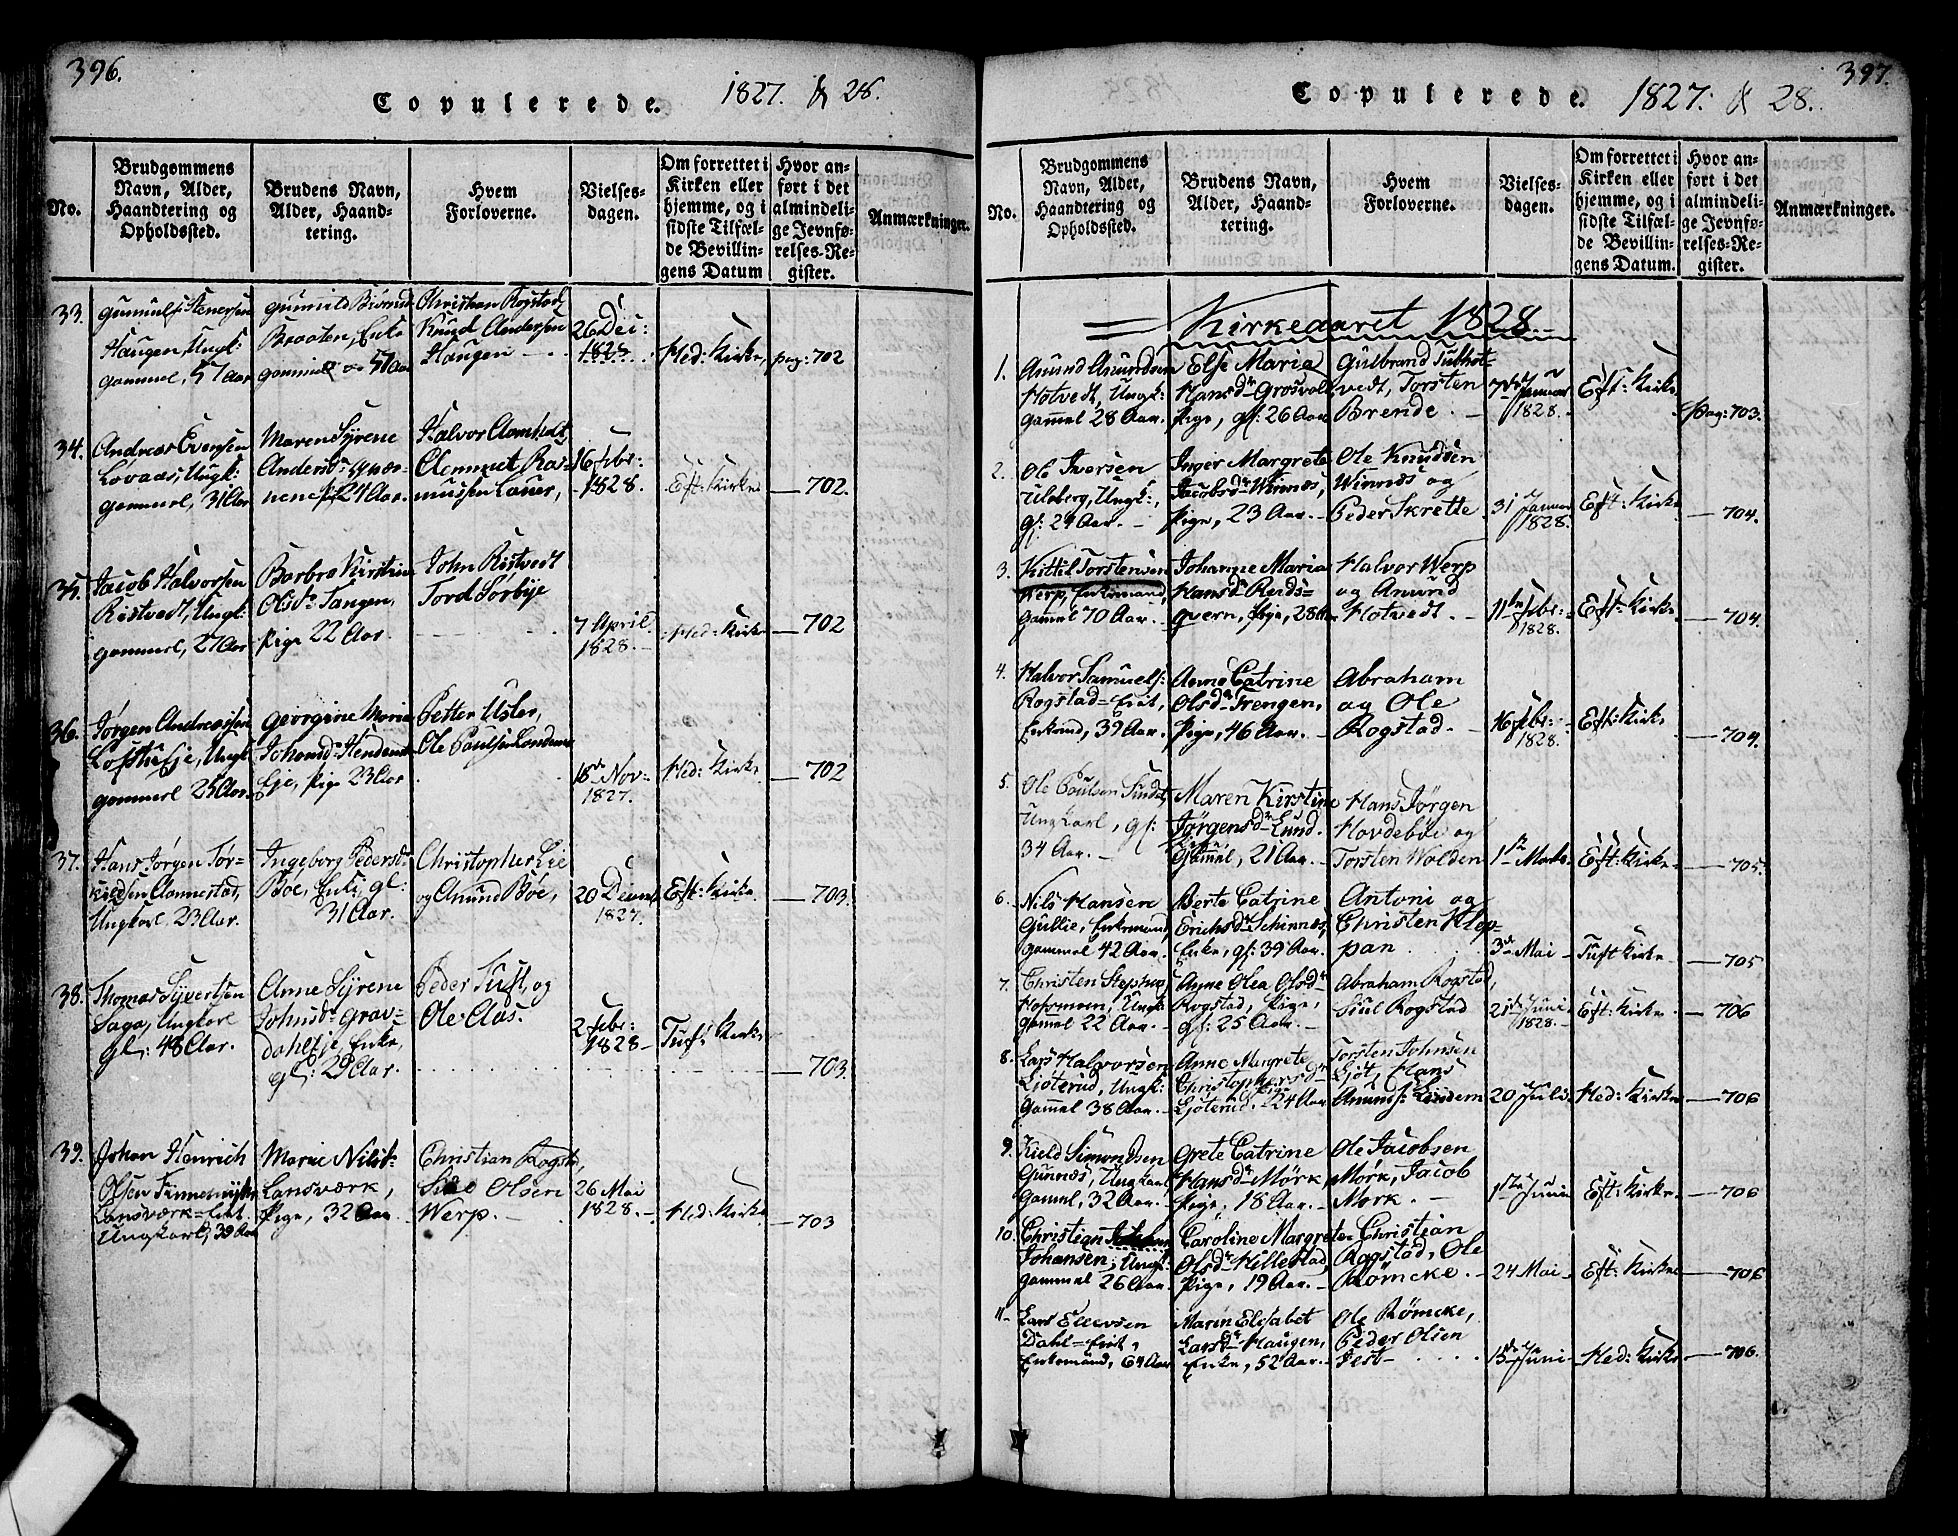 396.
Copulerede. 1827. & 28.
No.
Brudgommens
Navn, Alder,
Haandtering og
Opholdssted.
Brudens Navn,
Alder, Haand-
tering.
Hvem
Forloverne.
Vielses-
dagen.
Om forrettet i
Kirken eller
hjemme, og i
sidste Tilfæl-
de Bevillin-
gens Datum
Hvor an-
ført i det
almindeli-
ge Jevnfø-
relses-Re-
gister.
Anmærkninger.
33.
Haugen, Ungk:
gammel, 57 Aar
Braaten, Enke
Christian Rogstad,
Knud Andersen
Haugen
26 Dec:
Hed: Kirke,
pag: 702
34.
Andreas Evensen
Løvaas, Ungk:
gammel, 31 Aar
Maren Syrene
24 Aar.
Halvor Aamhelt,
16 Febr:
1828.
Eft: Kirke
702.
35.
Jacob Halvorsen
Ristvedt, Ungk:
gammel, 27 Aar
Barbra Kirstine
Olsdr Tangen,
Pige 22 Aar.
John Ristvedt
Tord Sørbye
7 April
1828.
Hed: Kirke
702
36.
Jørgen Andreassen
Løfthu Eje, Ungk
gammel 25 Aar.
Georgine Maria
Eje, Pige 23 Aar
Petter Usler,
18de Nov:
1827.
Hed: Kirke
702
37.
Hans Jørgen Tør=
kildsen Aannestad,
Ungkarl 23 Aar.
Ingeborg Pedersd
Böe, Enke, gl:
31 Aar.
Christopher Lie
og Anund Böe,
20 Decemb
1827.
Eft: Kirke
703.
38.
Thomas Syvertsen
Saga, Ungkarl
gl: 48 Aar.
Anne Syrene
Johnsdr Grav=
dahlEje, Enke,
gl: 29 Aar.
Peder Tuft, og
Ole Aas.
2 Febr:
1828
Tuft Kirke
703.
39.
Johan Henrich
Olsen
Lansværk=Eiet
Ungkarl, 39 Aar
Marie Nilsd:
Lansværk,
Pige, 32 Aar.
Christian Rogsta,
Olsen
Werp.
26 Mai
1828.
Hed: Kirke
703
397.
Copulerede. 1827. & 28.
No.
Brudgommens
Navn, Alder,
Haandtering og
Opholdssted.
Brudens Navn,
Alder, Haand-
tering.
Hvem
Forloverne.
Vielses-
dagen.
Om forrettet i
Kirken eller
hjemme, og i
sidste Tilfæl-
de Bevillin-
gens Datum.
Hvor an-
ført i det
almindeli-
ge Jevnfø-
relses-Re-
gister.
Anmærkninger.
Kirkeaaret 1828
1.
Anund Anundsen
Hotvedt, Ungk:
gammel 28 Aar.
Else Maria
Hansdr Grosvold
Pige, gl: 26 Aar
Gulbrand
Torsten
Brende.
7de Januar
1828.
Eft: Kirke
pag: 703.
2.
Ol Iversen
Ulsberg, Ungk:,
gl: 29 Aar.
Inger Margrete
Jacobsdr Winnæs,
Pige, 23 Aar.
Ole Knudsen
Winnæs og
Peder Skrette
31 Januar
1828.
Eft: Kirke
704.
3.
Kittil Torstensen
Werp, Enkemand,
gammel 70 Aar.
Johanne Maria
Hansdr Reids=
qvern, Pige, 28 Aar
Halvor Werp
og Anund
Hotvedt.
11te Febr:
1828.
Eft: Kirke
704.
4.
Halvor Samuels:
Rogstad=Eiet,
Enkemd, 39 Aar.
Anne Catrine
Olsdr Trengen,
Pige, 46 Aar.
Abraham
og Ole
Rogstad.
16 Febr:
1828.
Eft: Kirke
704.
5.
Ole Poulsen Sundet,
Ungkarl, gl:
34 Aar.
Maren Kirstine
Jörgensdr Lund.
Gamel, 21 Aar.
Hans Jörgen
Hovdeböe og
Torsten Wolden
1ste Marts.
Eft: Kirke
705.
6.
Nils Hansen
Gullie, Enkemand,
gammel 42 Aar.
Berte Catrine
Erichsdr Schinnæs,
Enke, gl: 39 Aar.
Antoni og
Christen Klep=
pan
3de Mai
Tuft Kirke
705
7.
Christen
Ungk:
gammel 22 Aar.
Anne Olea Olsdr
Rogstad, Pige,
gl: 25 Aar.
Abraham Rogstad,
Siul Rogstad
21de Juni
1828.
Eft: Kirke
706
8.
Lars Halvorsen
Ljøterud, Ungk:
gammel 38 Aar.
Anne Margrete
Christophersdr
Ljøterud. Pige 24 Aar
Torsten Johnsen
Ljøt, Hans
Anunds: Lindem
20 Juli
Hed: Kirke
706
9.
Kield Simondsen
Gunnæs, Ungkarl,
gaml, 32 Aar.
Grete Catrine
Hansdr Mørk,
Pige, 18 Aar.
Ole Jacobsen
Mørk, Jacob
Mørk.
1ste Juni
Eft: Kirke
706
10.
Christian
Johansen, Ungk:
gammel 26 Aar.
Caroline Margrete
Olsdr Hillestad,
Pige, 19 Aar.
Christian
Rogstad, Ole
Römcke.
24 Mai
Eft: Kirke
706
11.
Lars Ellevsen
Dahl=Eiet,
Enkemand, 64 Aar
Maren Elisabet
Larsdr Haugen,
Enke, 52 Aar.
Ole Römcke,
Peder Olsen
15de Juni
Hed: Kirke
706.